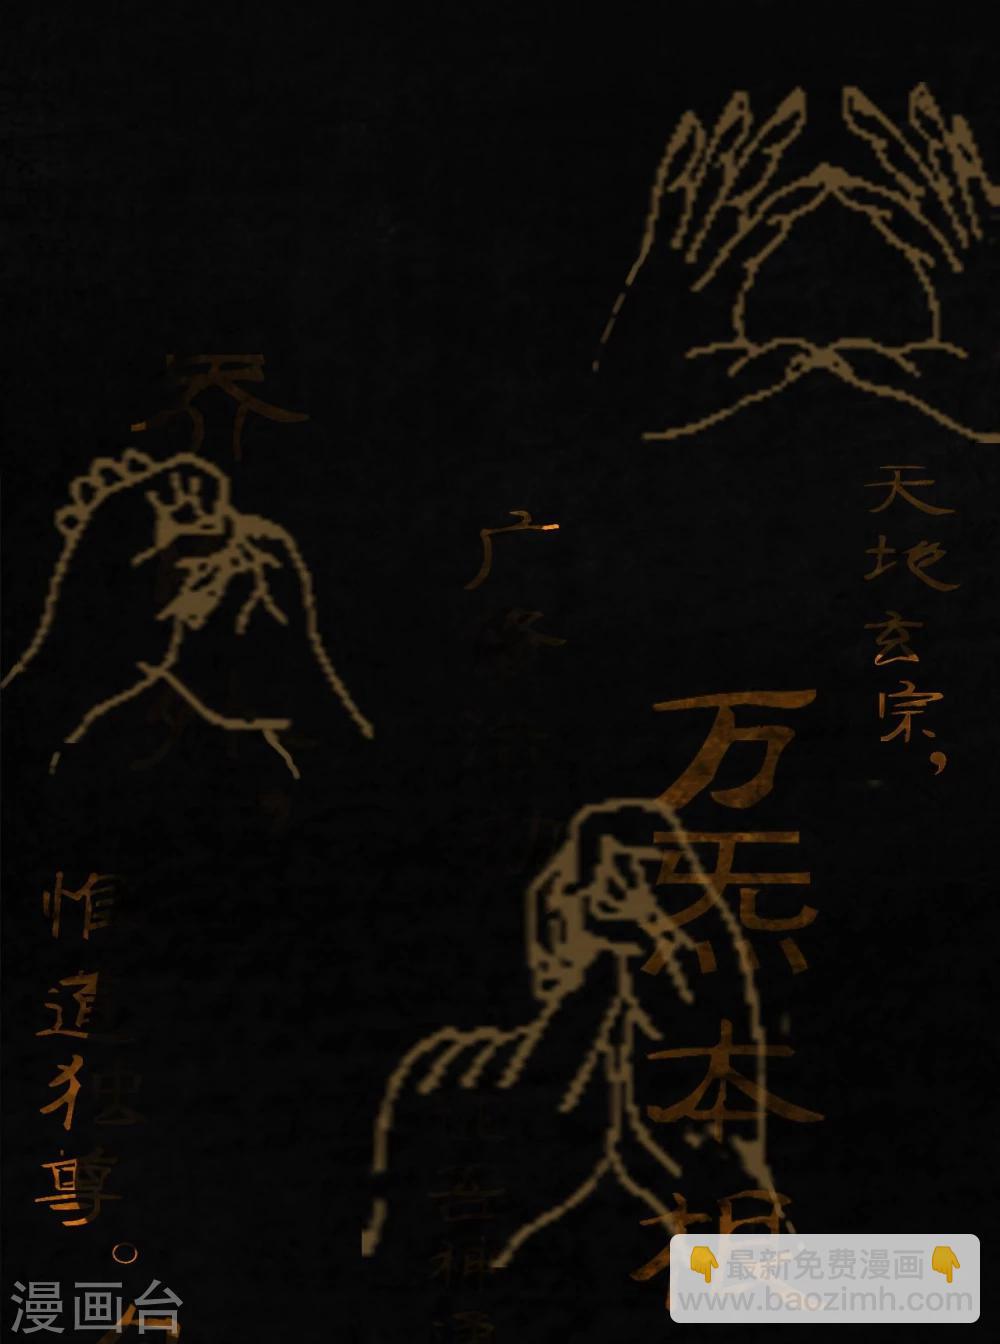 天地玄宗，
万炁本根
广修
证吾神通
界
外，
惟道独尊。
漫画台
👇最新免费漫画👇
www.baozimh.com